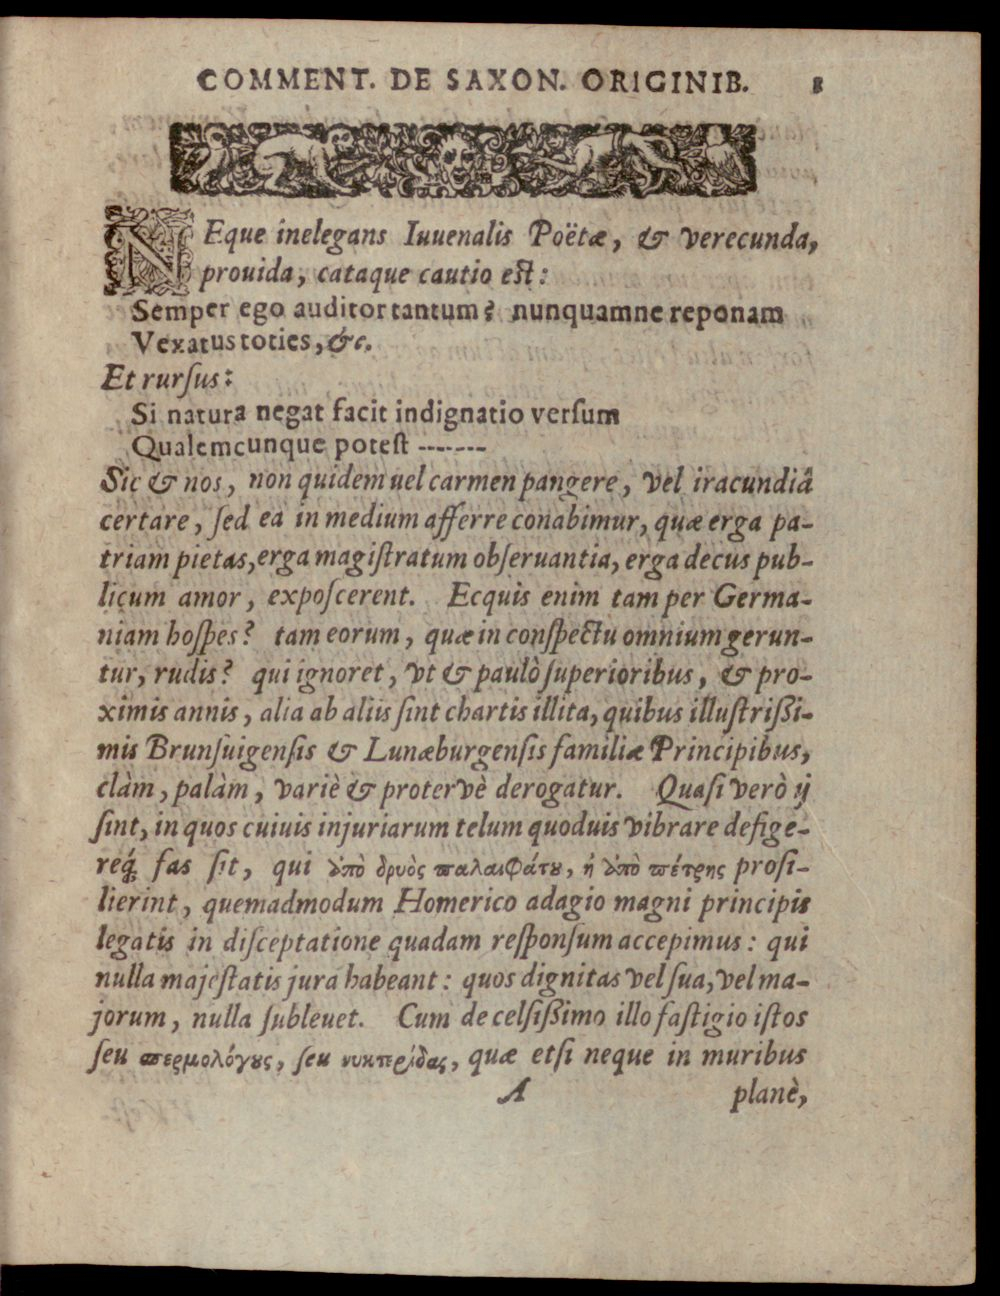 COMMENT. DE SAXON. ORIGINIB. 1
NEque inelegans Iuuenalis Poëtæ, & verecunda,
prouida, cataque cautio est:
Semper ego auditor tantum? nunquamne reponam
Vexatus toties, &c.
Et rurſus:
Si natura negat facit indignatio verſum
Qualemcunque poteſt -------
Sic & nos, non quidem uel carmen pangere, vel iracundiâ
certare, ſed ea in medium afferre conabimur, quæ erga pa-
triam pietas, erga magiſtratum obſeruantia, erga decus pub-
licum amor, expoſcerent. Ecquis enim tam per Germa-
niam hoſpes? tam eorum, quæ in conſpectu omnium gerun-
tur, rudis? qui ignoret, vt & paulò ſuperioribus, & pro-
ximis annis, alia ab aliis ſint chartis illita, quibus illuſtriſſi-
mis Brunſuigenſis & Lunæburgenſis familiæ Principibus,
clàm, palàm, variè & protervè derogatur. Quaſi verò ij
ſint, in quos cuiuis injuriarum telum quoduis vibrare defige-
req́; fas ſit, qui ἀπὸ δρυὸς παλαιφάτου, ἠ ἀπὸ πέτρης proſi-
lierint, quemadmodum Homerico adagio magni principis
legatis in diſceptatione quadam reſponſum accepimus: qui
nulla majeſtatis jura habeant: quos dignitas vel ſua, vel ma-
jorum, nulla ſubleuet. Cum de celſiſſimo illo faſtigio iſtos
ſeu περμολόγους, ſeu νυκτερίδας, quæ etſi neque in muribus
A planè,